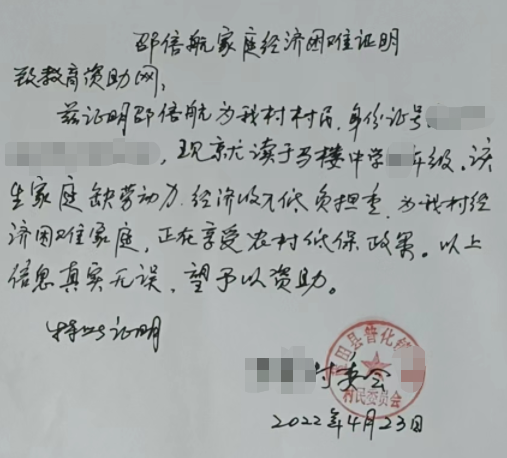 邵倍航家庭经济困难证明
致教育资助网,
兹证明邵倍航为我村村民,身份证号
,现就读于马楼中学 年级。该
生家庭缺劳动力.经济收入低负担重,为我村经
济困难家庭,正在享受农村低保政策。以上
信息真实无误,望予以资助。
特此证明
田县普化镇
村民委员会
村委会
2022年4月23日